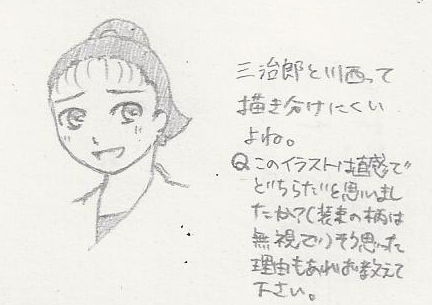 三治郎と川西って
描き分けにくい
よね。
Qこのイラストは直感で
どちらだと思いまし
たか?(装束の柄は
無視で)そう思った
理由もあればお教えて
下さい。